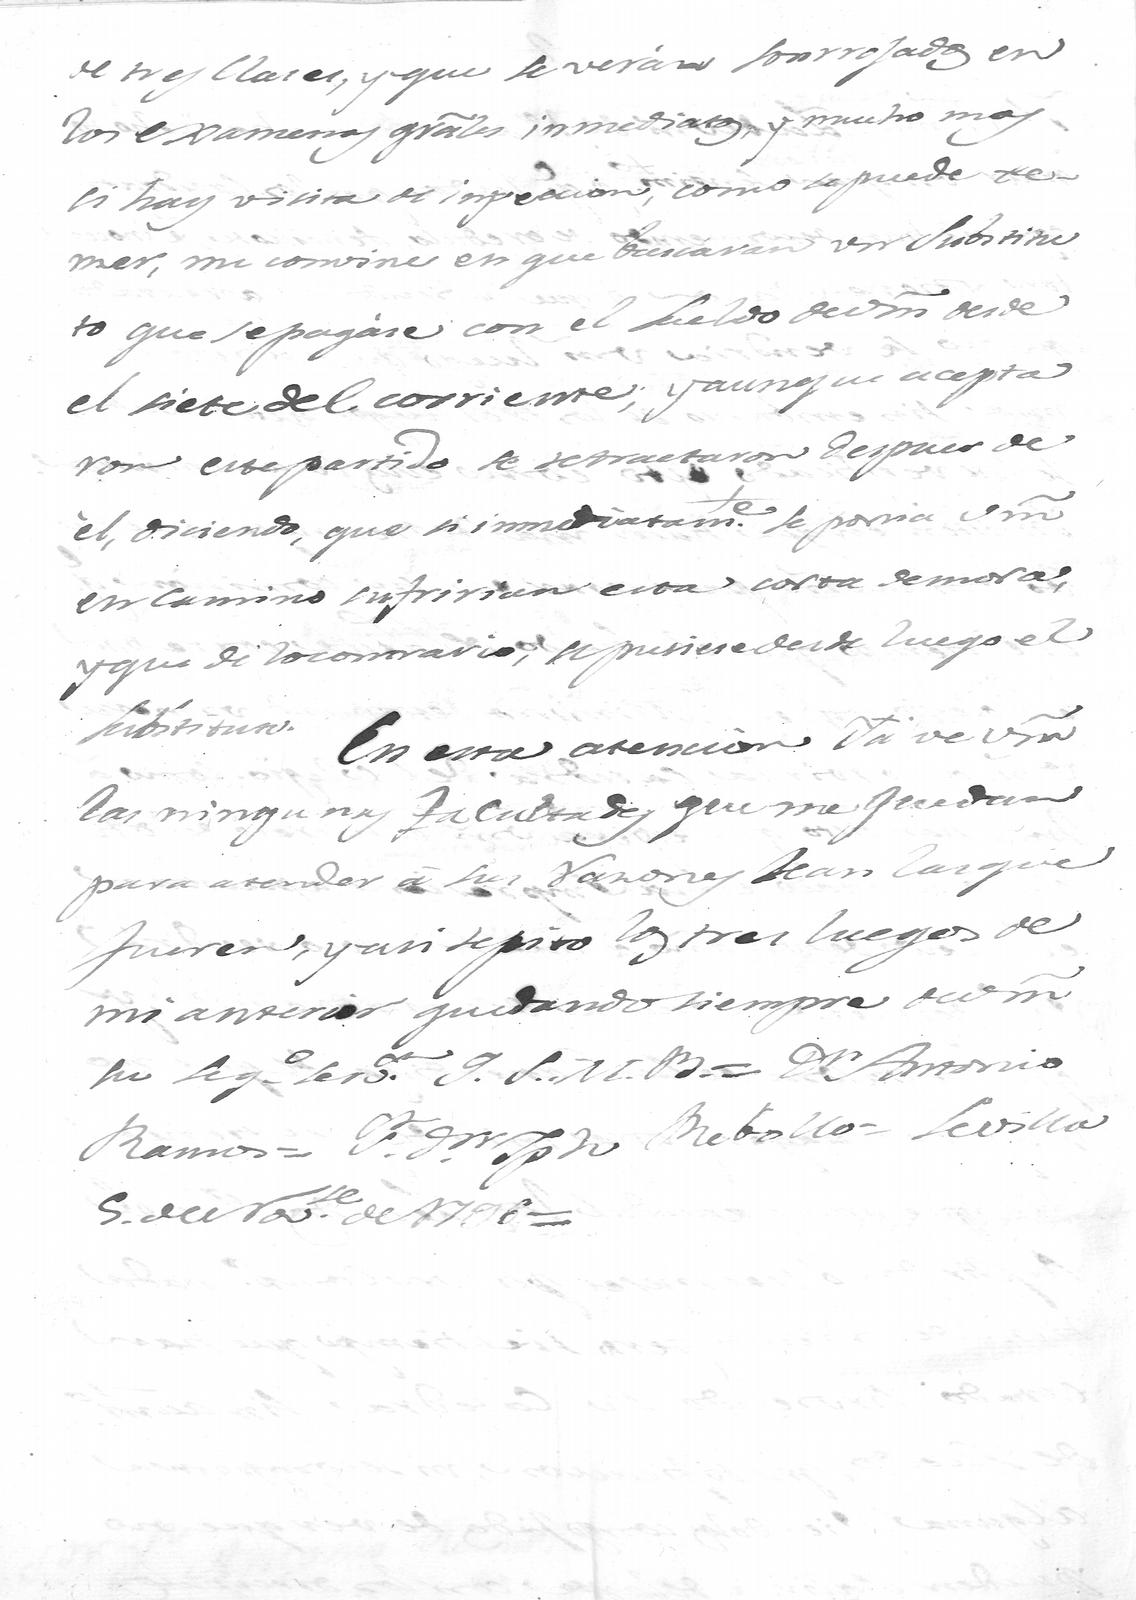 de tres Clases, y que se verán sonrrojados en
los examenes grãles inmediatos, y mucho mas
si hay visita de inspeccion, como se puede te-
mer, me convine en que buscaran un Substitu
to que se pagáse con el sueldo de vm̃ desde
el siete del corriente; y aunque acepta
ron este partido se retractaron despues de
èl, diciendo, que si inmediatam.te se ponia vm̃
en camino sufririan esta corta demora,
y que de lo contrario, se pusiese desde luego el
substituto. En esta atencion Ya ve vm̃
las ningunas facultades que me quedan
para atender à sus razones sean las que
fueren, y asi repito los tres luegos de
mi anterior quedando siempre de vm̃
su seg.o ser.or Q. S. M. B.= Dn Antonio
Ramos= S.r d.n Jph Rebollo= Sevilla
5. de Nov.re de 1796=